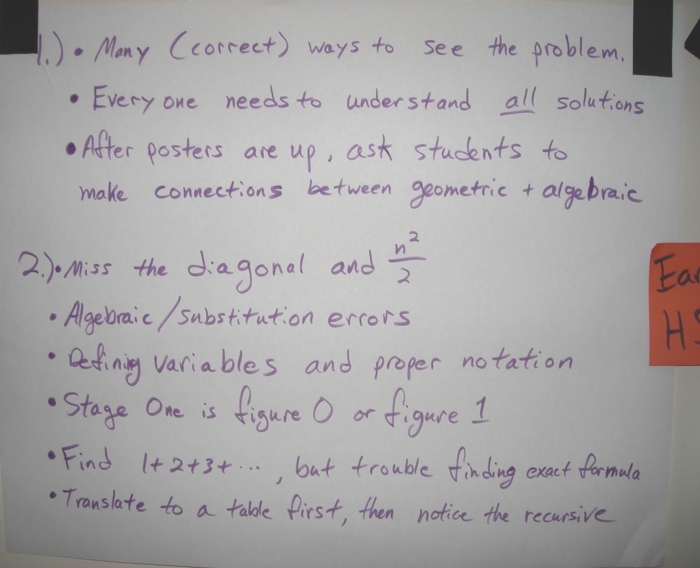 1.) • Many (correct) ways to see the problem.
• Everyone needs to understand all solutions
• After posters are up, ask students to
make connections between geometric + algebraic
2.) • Miss the diagonal and n²/2
• Algebraic/substitution errors
• Defining variables and proper notation
• Stage One is figure 0 or figure 1
• Find 1+2+3+..., but trouble finding exact formula
• Translate to a table first, then notice the recursive